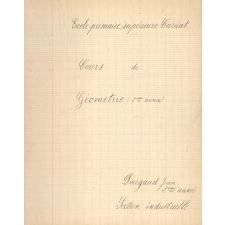 Ecole primaire supérieure Carnot
Cours de
Géométrie, 2me année
Durgaud Jean
2me année
Section industrielle